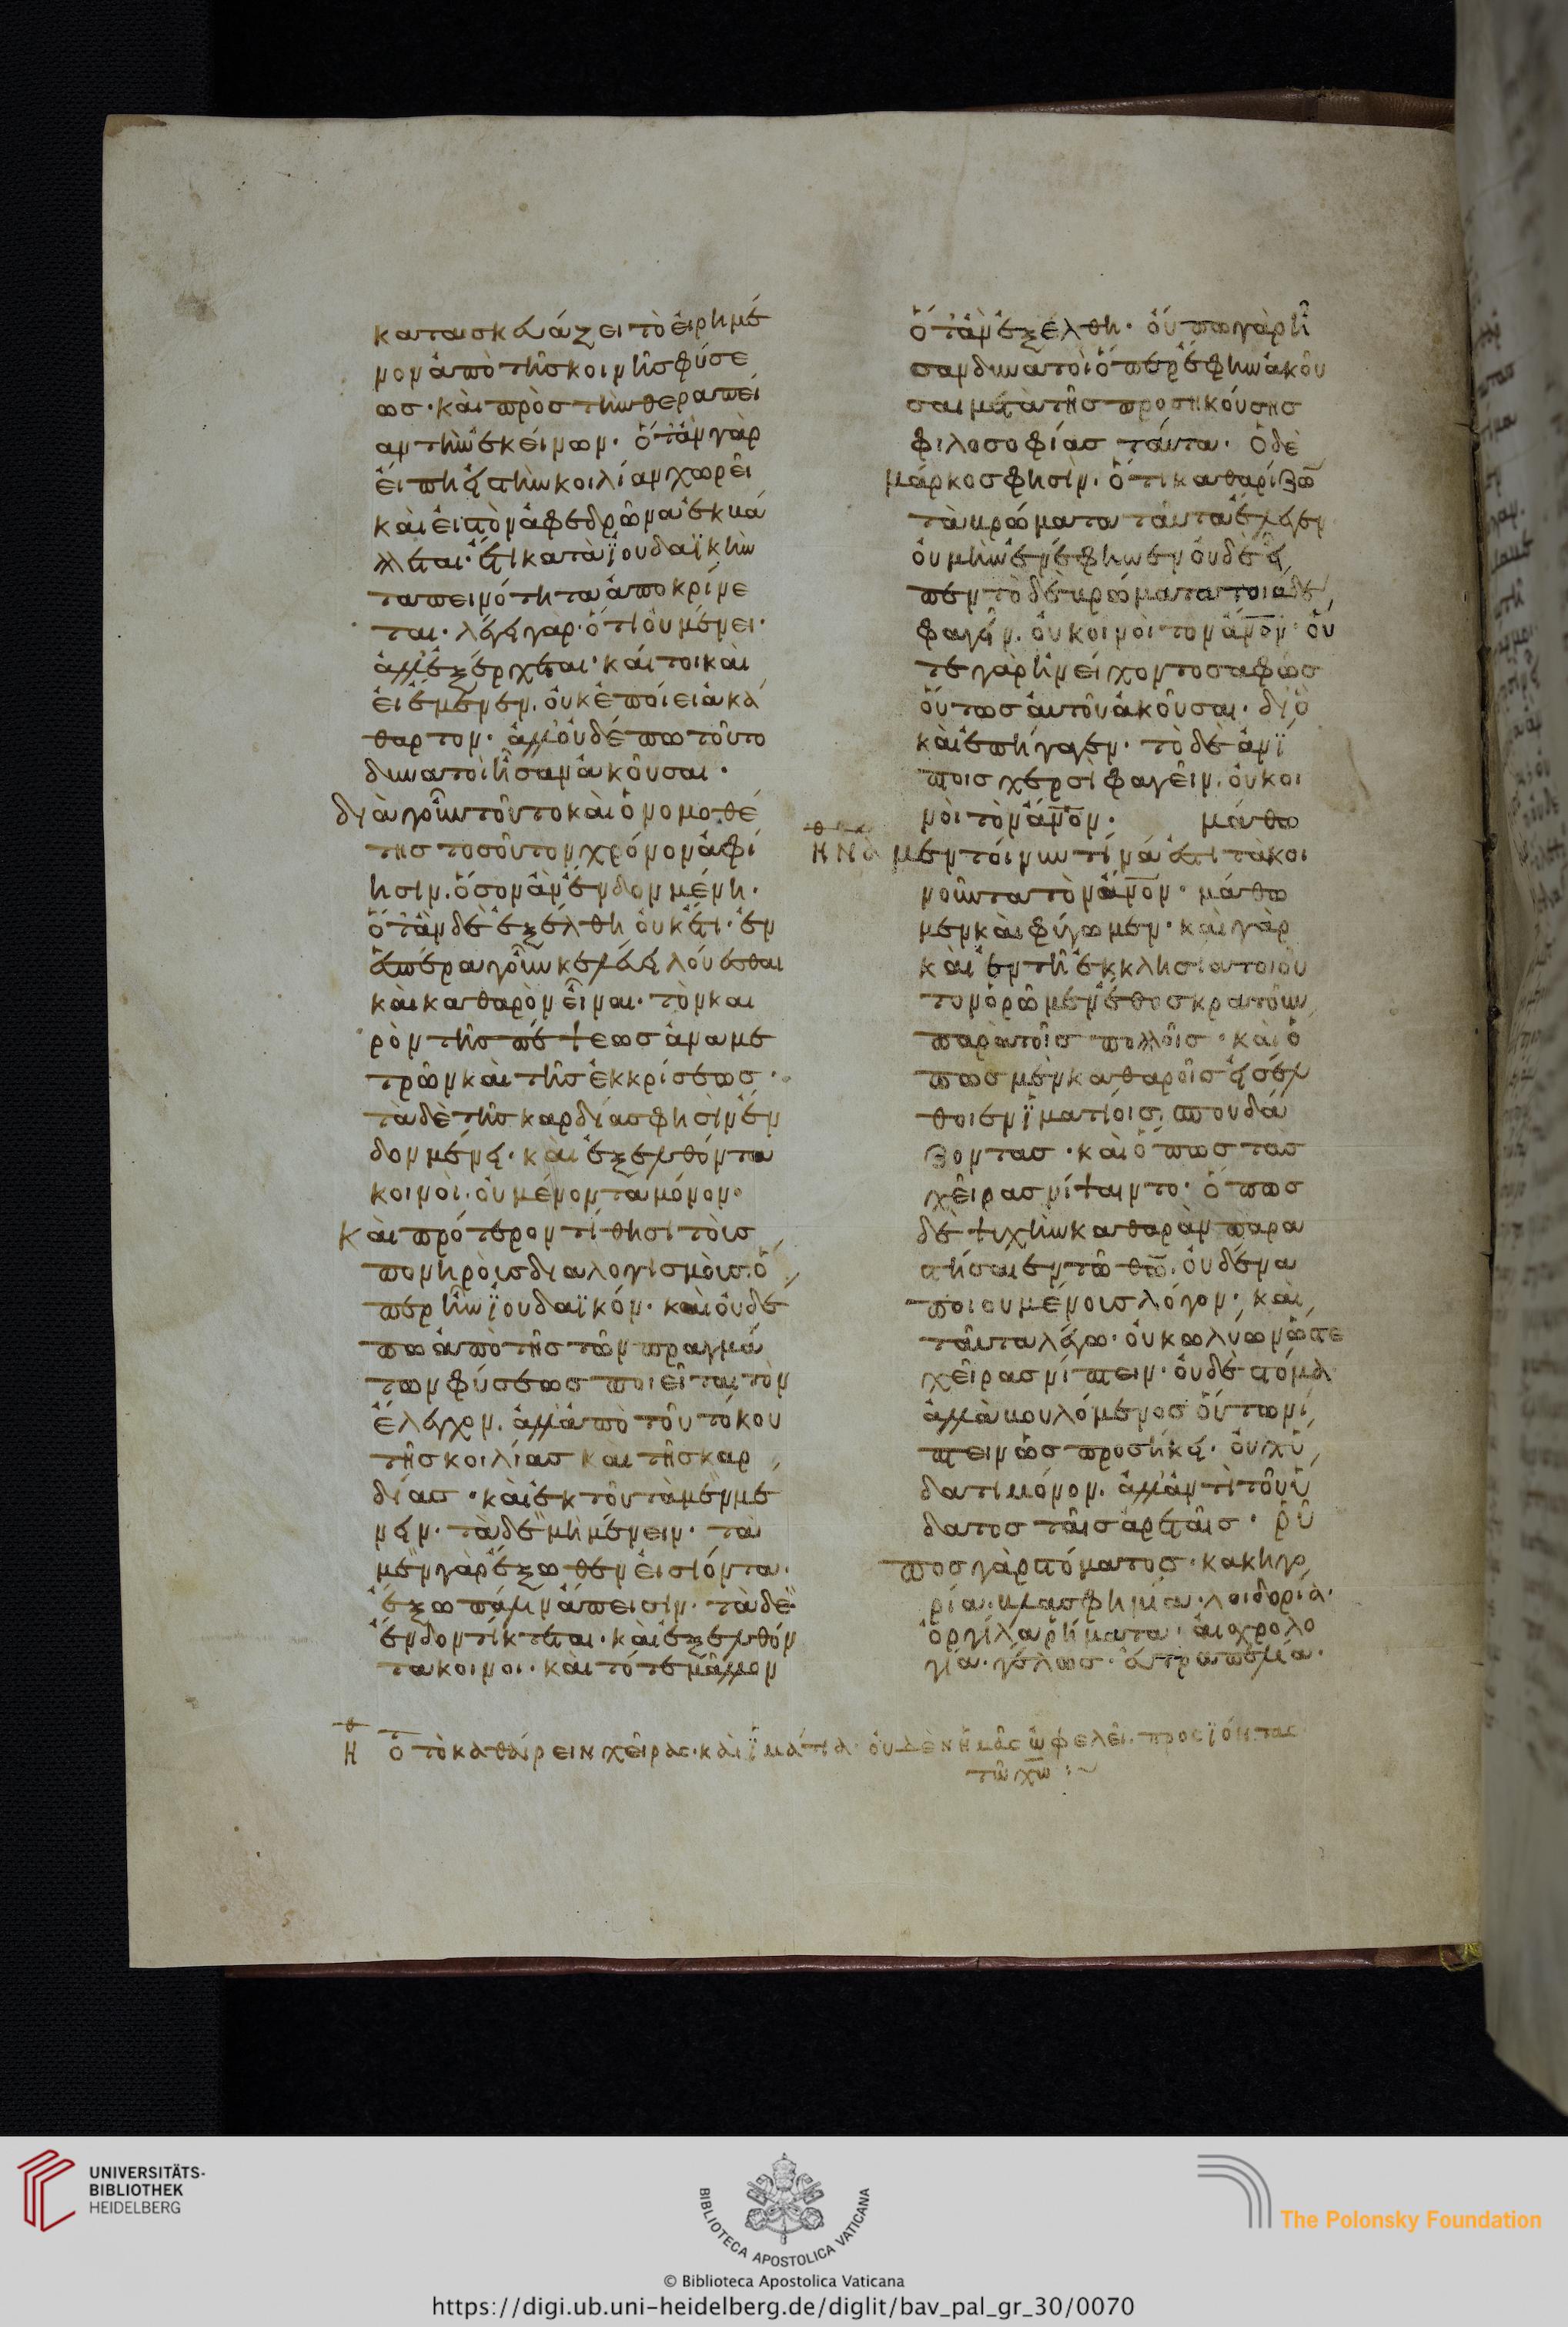 κατασκευάζει τὸ εἰρημέ
νον ἀπὸ τῆς κοινῆς φύσε
ως· καὶ πρὸς τὴν θεραπεί
αν τὴν ἐκείνων· ὅτὰν γὰρ
εἴπη εἰς τὴν κοιλίαν χωρεῖ
καὶ εἰς τὸν ἀφεδρῶνα ἐκβά
λλεται· ἔτι κατὰ ϊουδαϊκὴν
ταπεινότητα ἀποκρίνε
ται· λέγει γαρ· ὅτι οὐ μένει·
ἀλλ' ἐξέρχεται· καίτοι καὶ
εἰ ἔμενεν, οὐκ ἐποίει ἀκά
θαρτον· ἀλλ' οὐδέπω τοῦτο
δυνατοὶ ἦσαν ἀκοῦσαι·
διὰ γοῦν τοῦτο καὶ ὁ νομοθέ
της τοσοῦτον χρόνον ἀφί
ησιν, ὅσον ἂν ἔνδον μένη·
ὅτὰν δὲ ἐξέλθη οὐκέτι· ἐν
ἑσπέρα γοῦν κελεύει λούεσθαι
καὶ καθαρὸν εἶναι· τὸν και
ρὸν τῆς πέψεως ἀναμε
τρῶν καὶ τῆς ἐκκρίσεως·
τὰ δὲ τῆς καρδίας φησὶν ἔν
δον μένει· καὶ ἐξελθόντα
κοινοῖ· οὐ μένοντα μόνον·
Καὶ πρότερον τίθησι τοὺς
πονηροὺς διαλογισμοὺς· ὅ
περ ἦν ϊουδαϊκόν· καὶ οὐδέ
πω ἀπὸ τῆς τῶν πραγμά
των φύσεως ποιεῖται τὸν
ἔλεγχον, ἀλλὰ ἀπὸ τοῦ τόκου
τῆς κοιλίας καὶ τῆς καρ
δίας· καὶ ἐκ τοῦ τὰ μὲν μέ
νειν· τὰ δὲ μὴ μένειν· τὰ
μὲν γὰρ ἔξωθεν εἰσιόντα·
ἔξω πάλιν ἄπεισιν· τὰ δὲ
ἔνδον τίκτεται· καὶ ἐξελθόν
τα κοινοι· καὶ τότε μᾶλλον
ὅτὰν ἐξέλθη· οὔπω γὰρ ἦ
σαν δυνατοὶ ὅπερ ἔφην ἀκοῦ
σαι μετὰ τῆς προσηκούσης
φιλοσοφίας ταῦτα· Ὁ δὲ
μάρκος φησὶν, ὅτι καθαρίζω̅
τὰ βρώματα ταῦτα ἔλεγεν
οὐ μὴν ἐνέφηνεν οὐδὲ εἶ
πεν τὸ δὲ βρώματα τοιάδε
φαγεῖν, οὐ κοινοὶ τὸν ἄν̅ον· οὐ
τε γὰρ ἠνείχοντο σαφῶς
οὕτως αὐτοῦ ἀκοῦσαι· διὸ
καὶ ἐπήγαγεν· τὸ δὲ ἀνί
πτοις χερσὶ φαγεῖν, οὐ κοι
νοὶ τὸν ἄν̅ον· μάθω
ΗΘ μὲν τοίνυν τίνά ἐστι τὰ κοι
νοῦντα τὸν ἄν̅ον· μάθω
μεν καὶ φύγωμεν· καὶ γὰρ
καὶ ἐν τῆ ἐκκλησία τοιοῦ
τον ὁρῶμεν ἔθος κρατοῦν
παρὰ τοῖς πολλοῖς· καὶ ὅ
πως μὲν καθαροῖς εἰσέλ
θοιεν ϊματίοις, σπουδά
ζοντας· καὶ ὅπως τὰς
χεῖρας νίψαιντο· ὅπως
δὲ ψυχὴν καθαρὰν παρα
στήσαιεν τῶ θω̅, οὐδένα
ποιουμένους λόγον· καὶ
ταῦτα λέγω· οὐ κωλύων ὥστε
χεῖρας νίπτειν· οὐδὲ στόμα
ἀλλὰ βουλόμενος οὕτω νί
πτειν ὡς προσῆκει· οὐχ ὕ
δατι μόνον, ἀλλ' ἀντὶ τοῦ ὕ
δατος ταῖς ἀρεταῖς· ῥύ
πος γὰρ στόματος· κακηγο
ρία· βλασφημία· λοιδορία·
ὀργίλα ῥήματα· αἰσχρολο
γία· γέλως· εὐτραπελία·
ΗΘ Ὅτι τὸ καθαίρειν χεῖρας· καὶ ϊμάτια οὐδὲν ἡμᾶς ὠφελεῖ· προσϊόντας
τῶ χω̅ :~
UNIVERSITÄTS-
BIBLIOTHEK
HEIDELBERG
BIBLIOTECA APOSTOLICA VATICANA
The Polonsky Foundation
© Biblioteca Apostolica Vaticana
https://digi.ub.uni-heidelberg.de/diglit/bav_pal_gr_30/0070